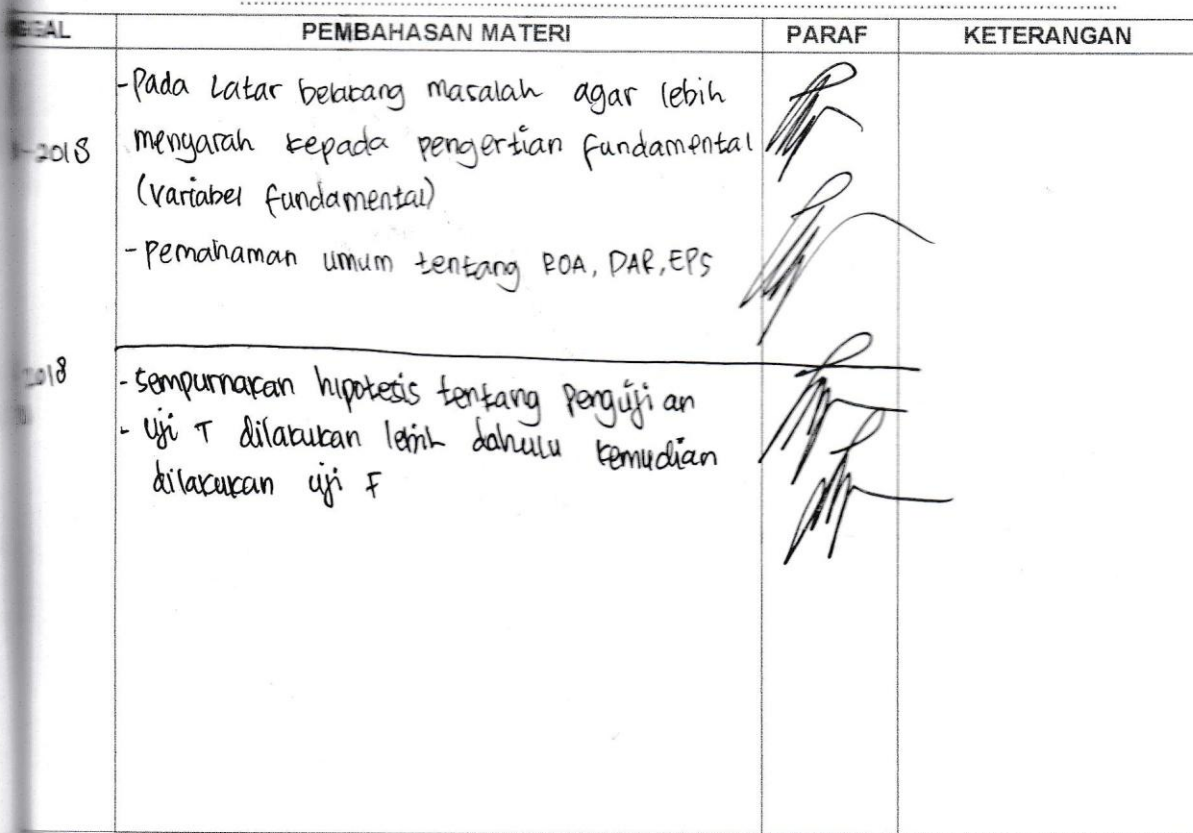 GAL PEMBAHASAN MATERI PARAF KETERANGAN
- Pada Latar belakang masalah agar lebih
-2018 mengarah kepada pengertian fundamental
(variabel fundamental)
- pemahaman umum tentang ROA, DAR, EPS
2018 - sempurnakan hipotesis tentang Pengujian
- Uji T dilakukan lebih dahulu kemudian
dilakukan uji F